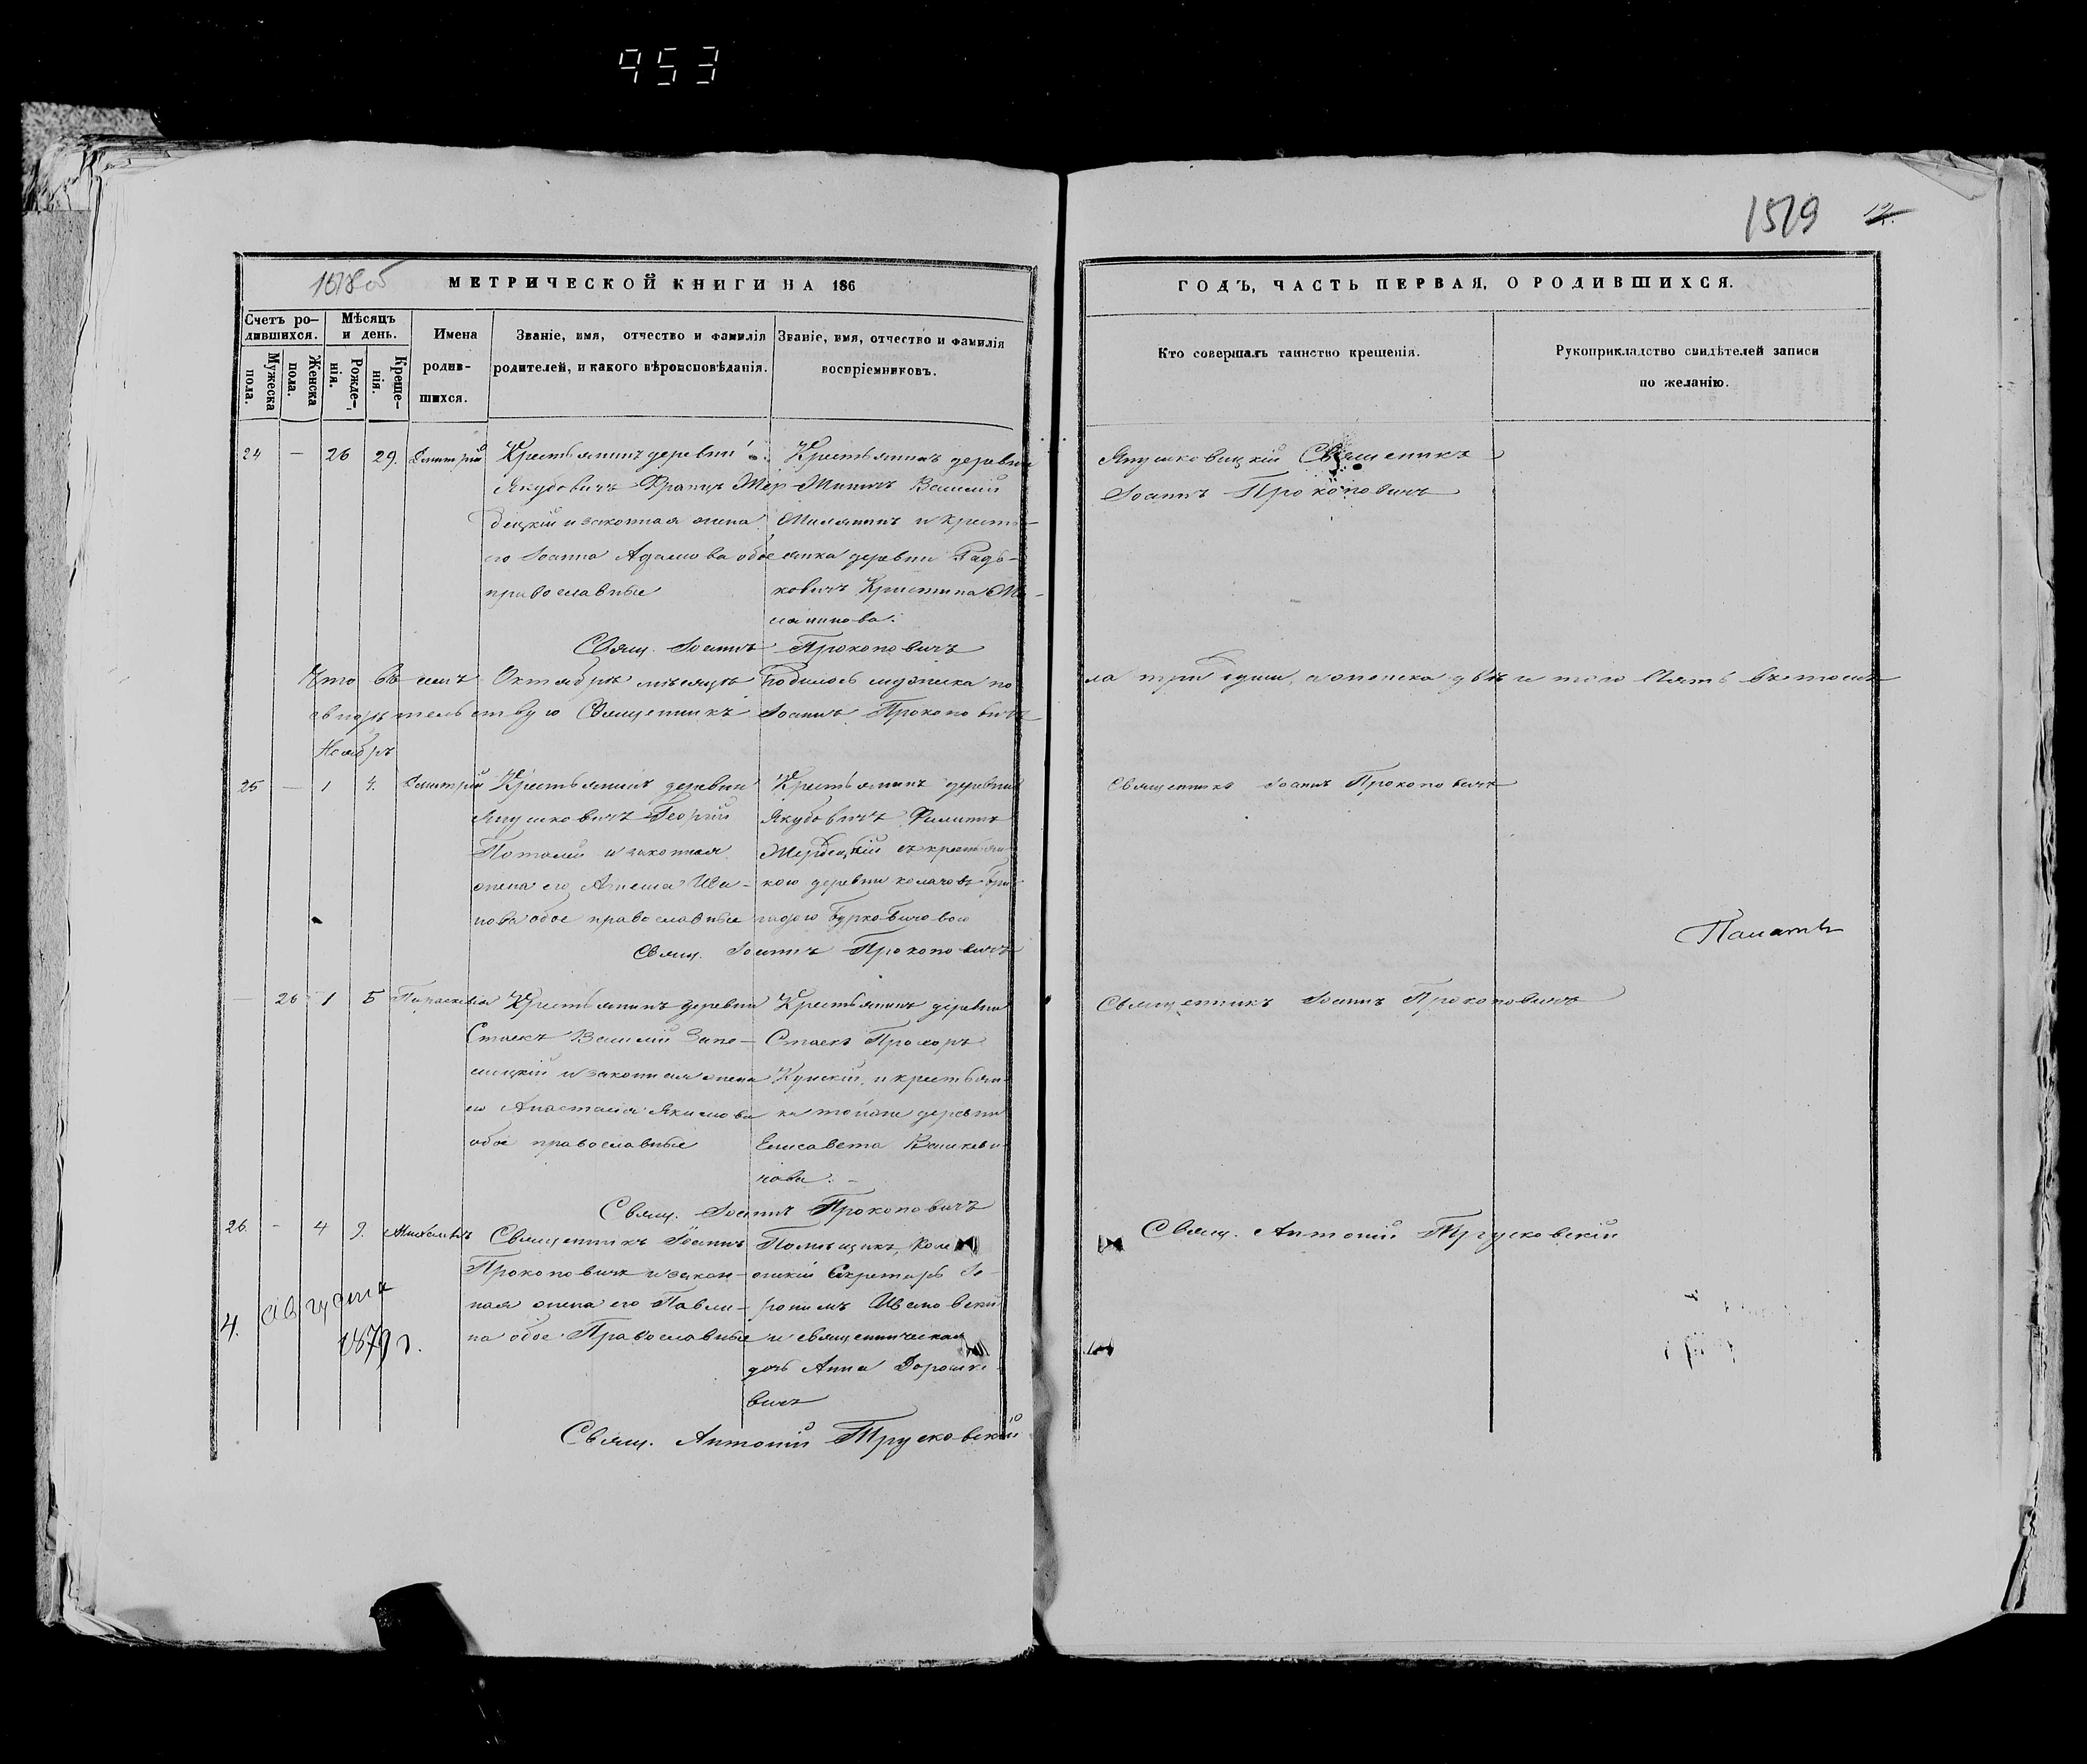 953
1519 12.
1518об
МЕТРИЧЕСКОЙ КНИГИ НА 186
ГОДЪ, ЧАСТЬ ПЕРВАЯ, О РОДИВШИХСЯ.
Счетъ ро-
дившихся.
Мѣсяцъ
и день.
Мужеска
пола.
Женска
пола.
Рожде-
нія.
Креще-
нія.
Имена
родив-
шихся.
Званіе, имя, отчество и фамилія
родителей, и какого вѣроисповѣданія.
Званіе, имя, отчество и фамилія
воспріемниковъ.
Кто совершалъ таинство крещенія.
Рукоприкладство свидѣтелей записи
по желанію.
24 — 26 29. Дмитрій
Крестьянинъ деревни
Якубовичъ Францъ Жер
децкій и законная жена
его Іоанна Адамова обое
православные
Крестьянинъ деревни
Василій
и кресть-
янка деревни Радь-
ковичъ Кристина Ми-
ланинова.
Янушковицкій Священикъ
Іоаннъ Прокоповичъ
Свящ. Іоаннъ Прокоповичъ
Что въ семъ Октябрѣ мѣсяцѣ родилось мужеска по
ла три души, а женска двѣ и того пять въ томъ
свидѣтельствую Священникъ Іоаннъ Прокоповичъ
Ноябрь
25 — 1 4. Дмитрій
Крестьянинъ деревни
Янушковичъ Георгій
и законная
жена его Агнеша Ива-
нова обое православные
Крестьянинъ деревни
Якубовичъ Филиппъ
Жердецкій съ крестьян-
кою деревни
Бурковичовою
Священникъ Іоаннъ Прокоповичъ
Свящ. Іоаннъ Прокоповичъ
— 26 1 5 Параскевія
Крестьянинъ деревни
Стаекъ Василій Запо-
и законная жена
его Анастасія Якимова
обое православные
Крестьянинъ деревни
Стаекъ Прохоръ
Кунскій, и крестьян-
ка тойже деревни
Елисавета
Священникъ Іоаннъ Прокоповичъ
Свящ. Іоаннъ Прокоповичъ
26. - 4 9. Михаилъ
Священникъ Іоаннъ
Прокоповичъ и закон-
ная жена его Павли-
на обое Православные
Помѣщикъ, Коле
жскій Секретарь Іе-
ронимъ
и священническая
дочь Анна Дорошке-
вичъ
Свящ. Антоній Трусковскій
4. Августа
1879 г.
Свящ. Антоній Трусковскій